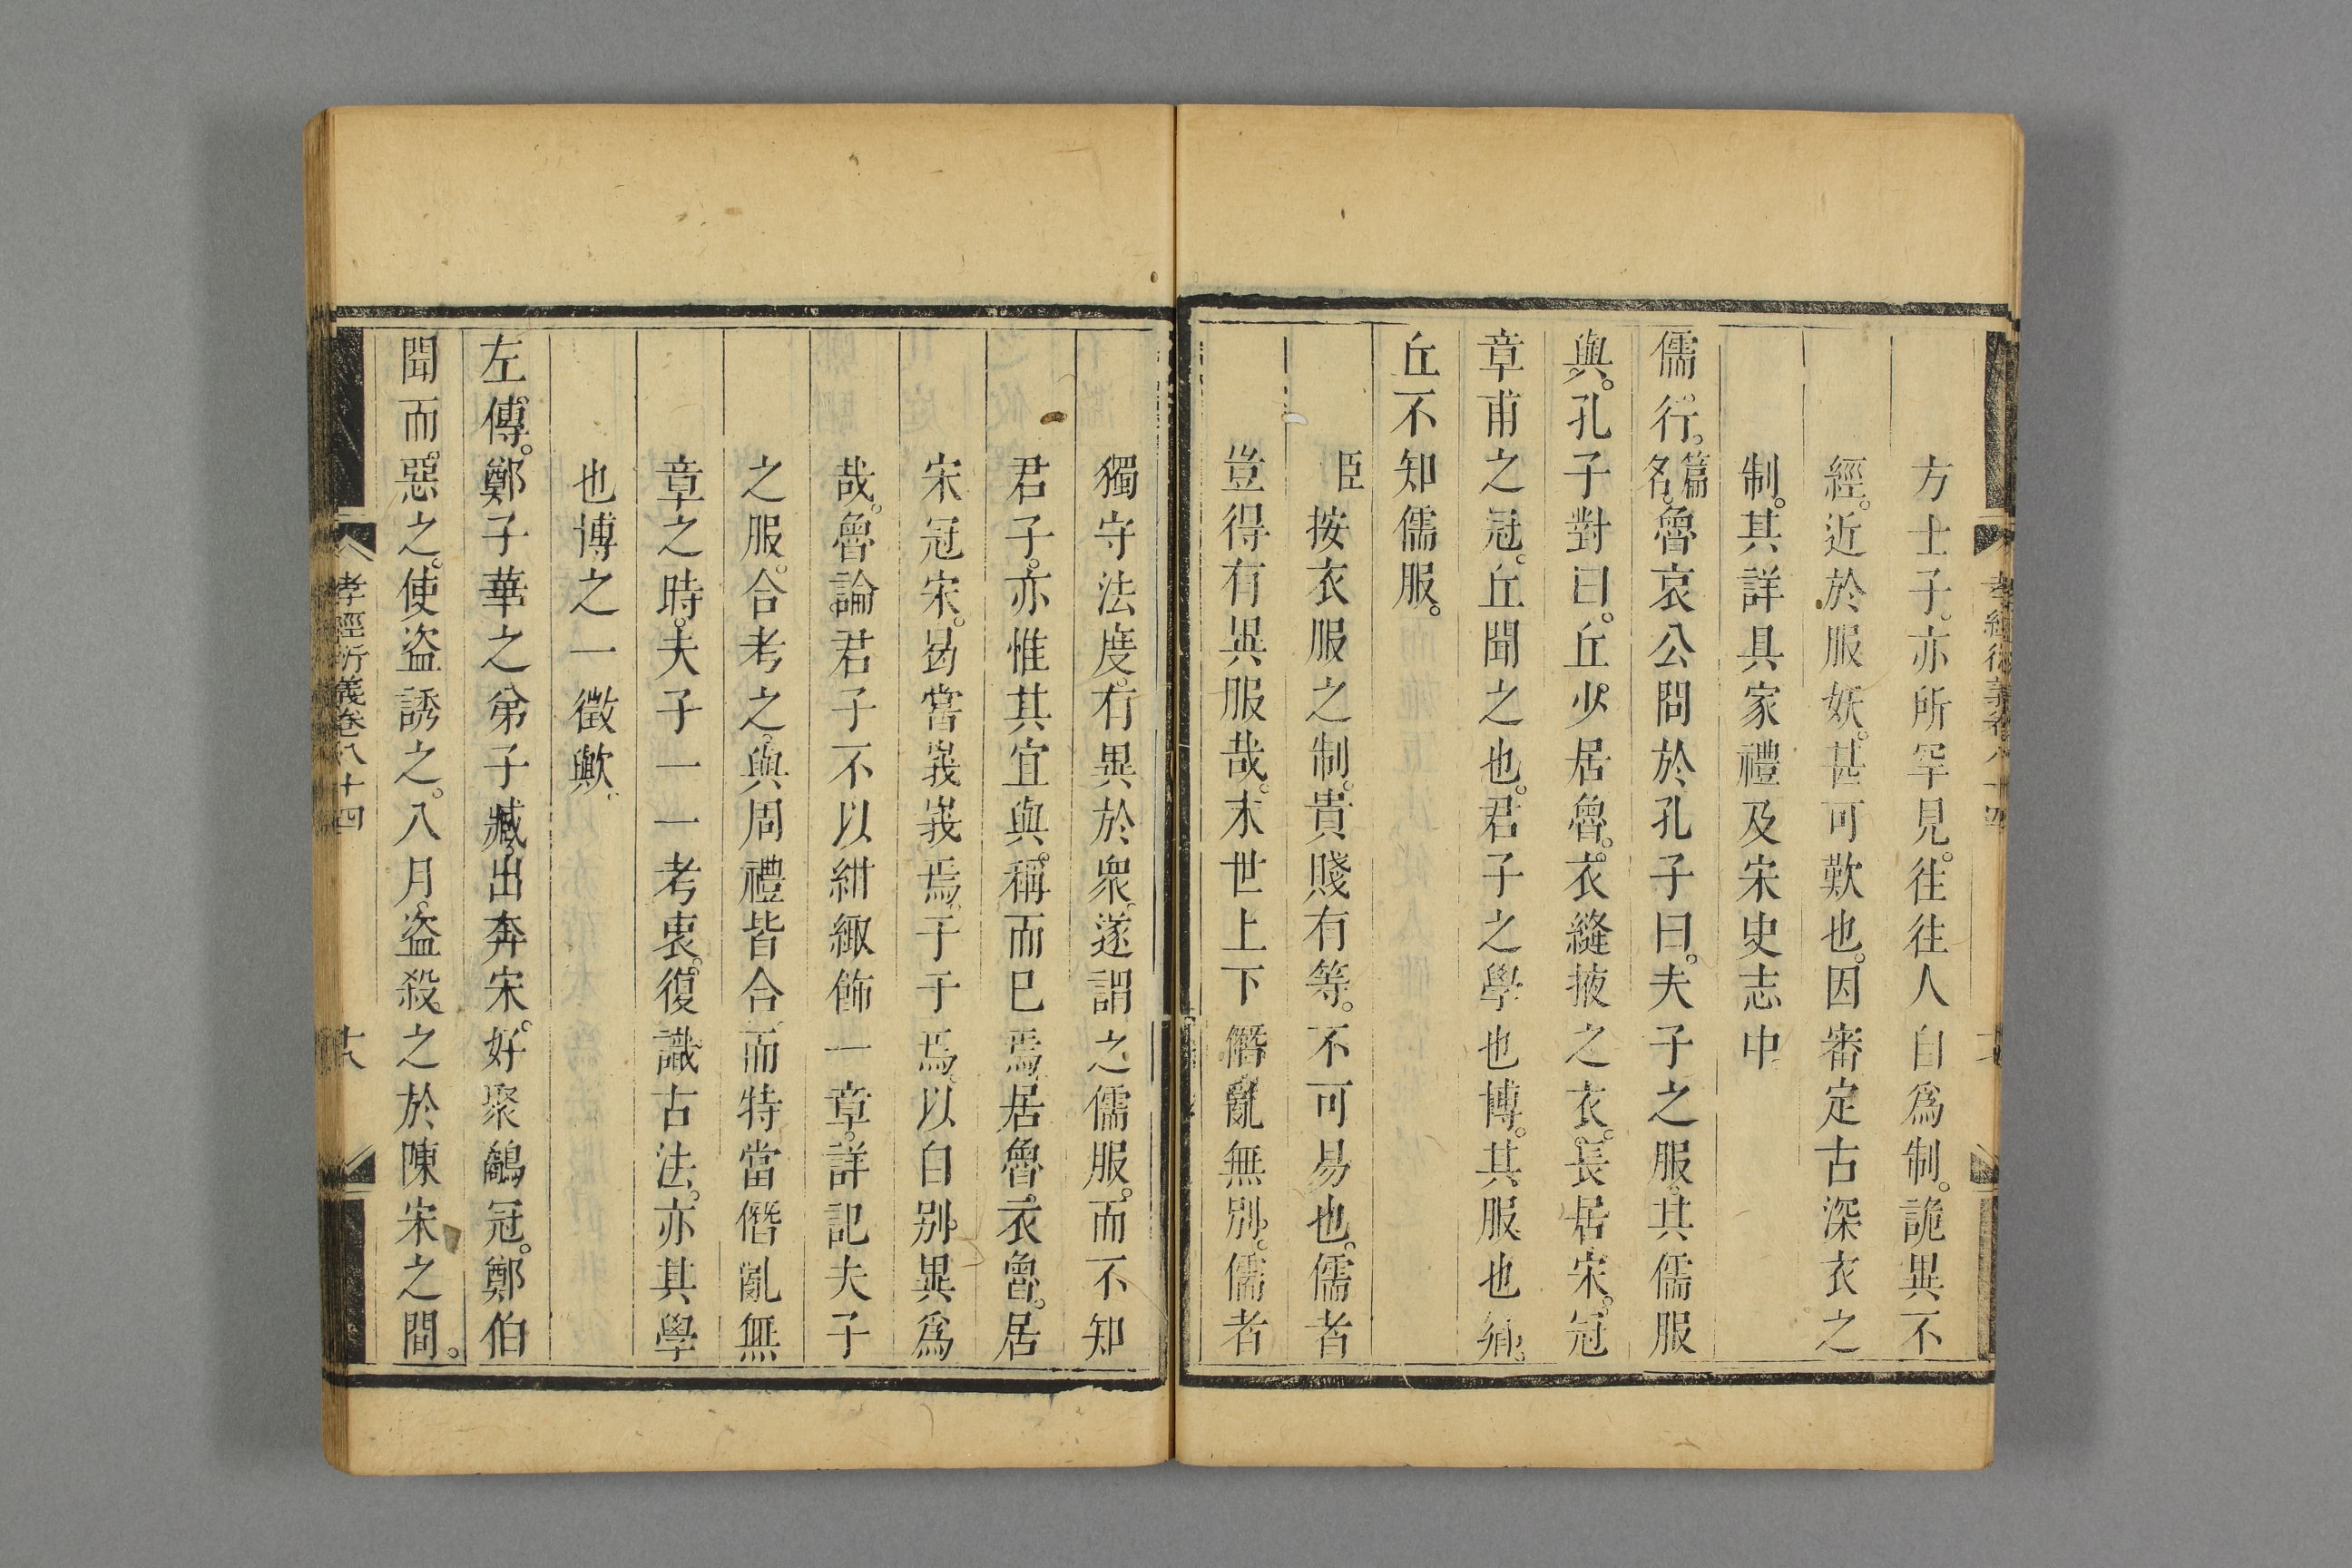 方士子。亦所罕見。徃徃人自爲制。詭異不
經。近於服妖。甚可歎也。因審定古深衣之
制。其詳具家禮及宋史志中
儒行。篇名。魯哀公問於孔子曰。夫子之服。其儒服
與。孔子對曰。丘少居魯。衣縫掖之衣。長居宋。冠
章甫之冠。丘聞之也。君子之學也博。其服也鄉。
丘不知儒服。
臣按衣服之制。貴賤有等。不可易也。儒者
豈得有異服哉。末世上下僭亂無別。儒者
獨守法度。有異於衆。遂謂之儒服。而不知
君子。亦惟其宜與。稱而已焉。居魯衣魯。居
宋冠宋。曷當峩峩焉。于于焉。以自別異爲
哉。魯論君子不以紺緅飾一章。詳記夫子
之服。合考之。與周禮皆合。而特當僭亂無
章之時。夫子一一考衷。復識古法。亦其學
也博之一徵歟。
左傳。鄭子華之弟子臧。出奔宋。好聚鷸冠。鄭伯
聞而惡之。使盗誘之。八月。盗殺之於陳宋之間。
孝經衍義卷八十四
十八